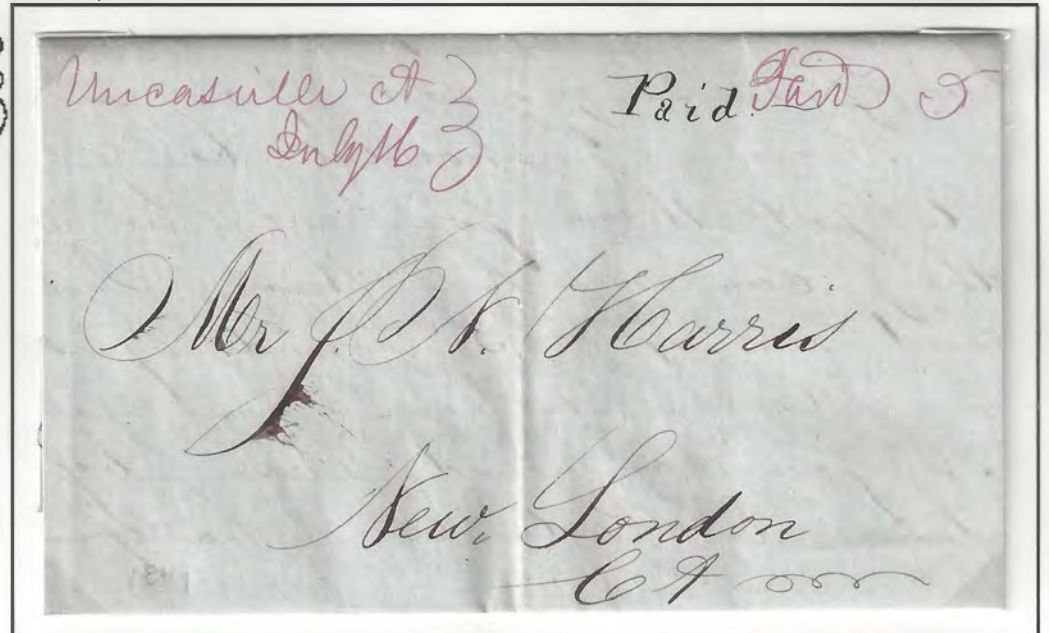 Uncasville Ct
July 16
Paid Paid 5
Mr J. N. Harris
New London
Ct